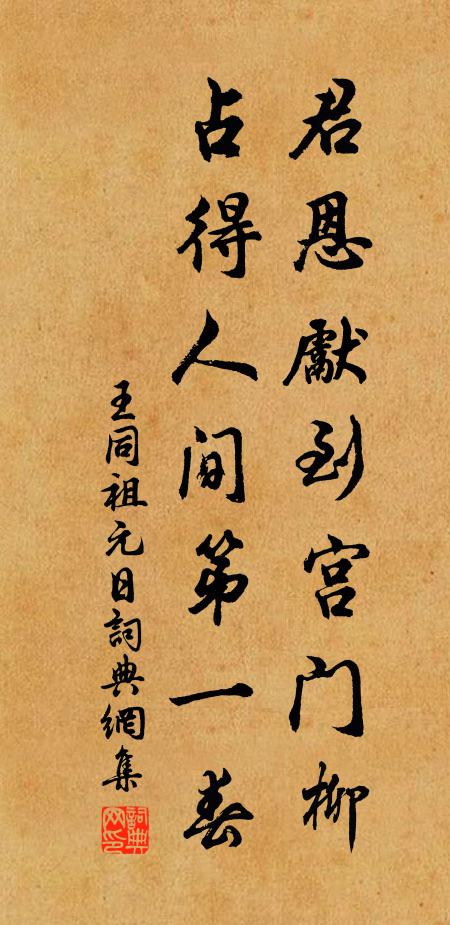 君恩獻到宫门柳
占得人间第一春
王同祖元日詞典網集
詞典网印